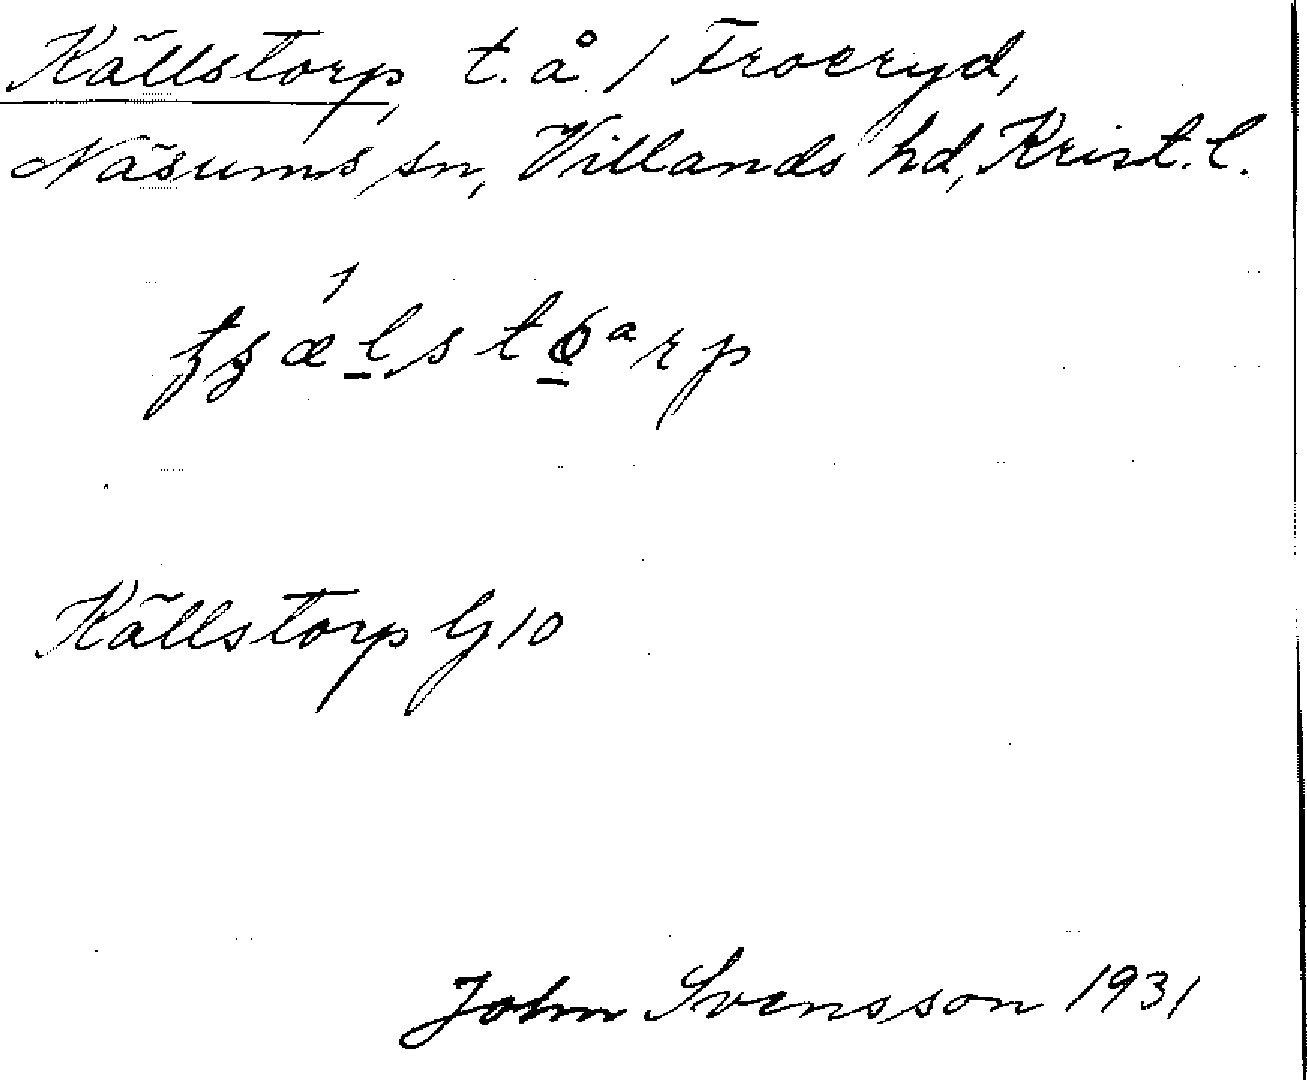 Källstorp, t. å. / Froeryd,
Näsums sn, Villands hd, Krist. l.
Källstorp G 10
John Svensson 1931